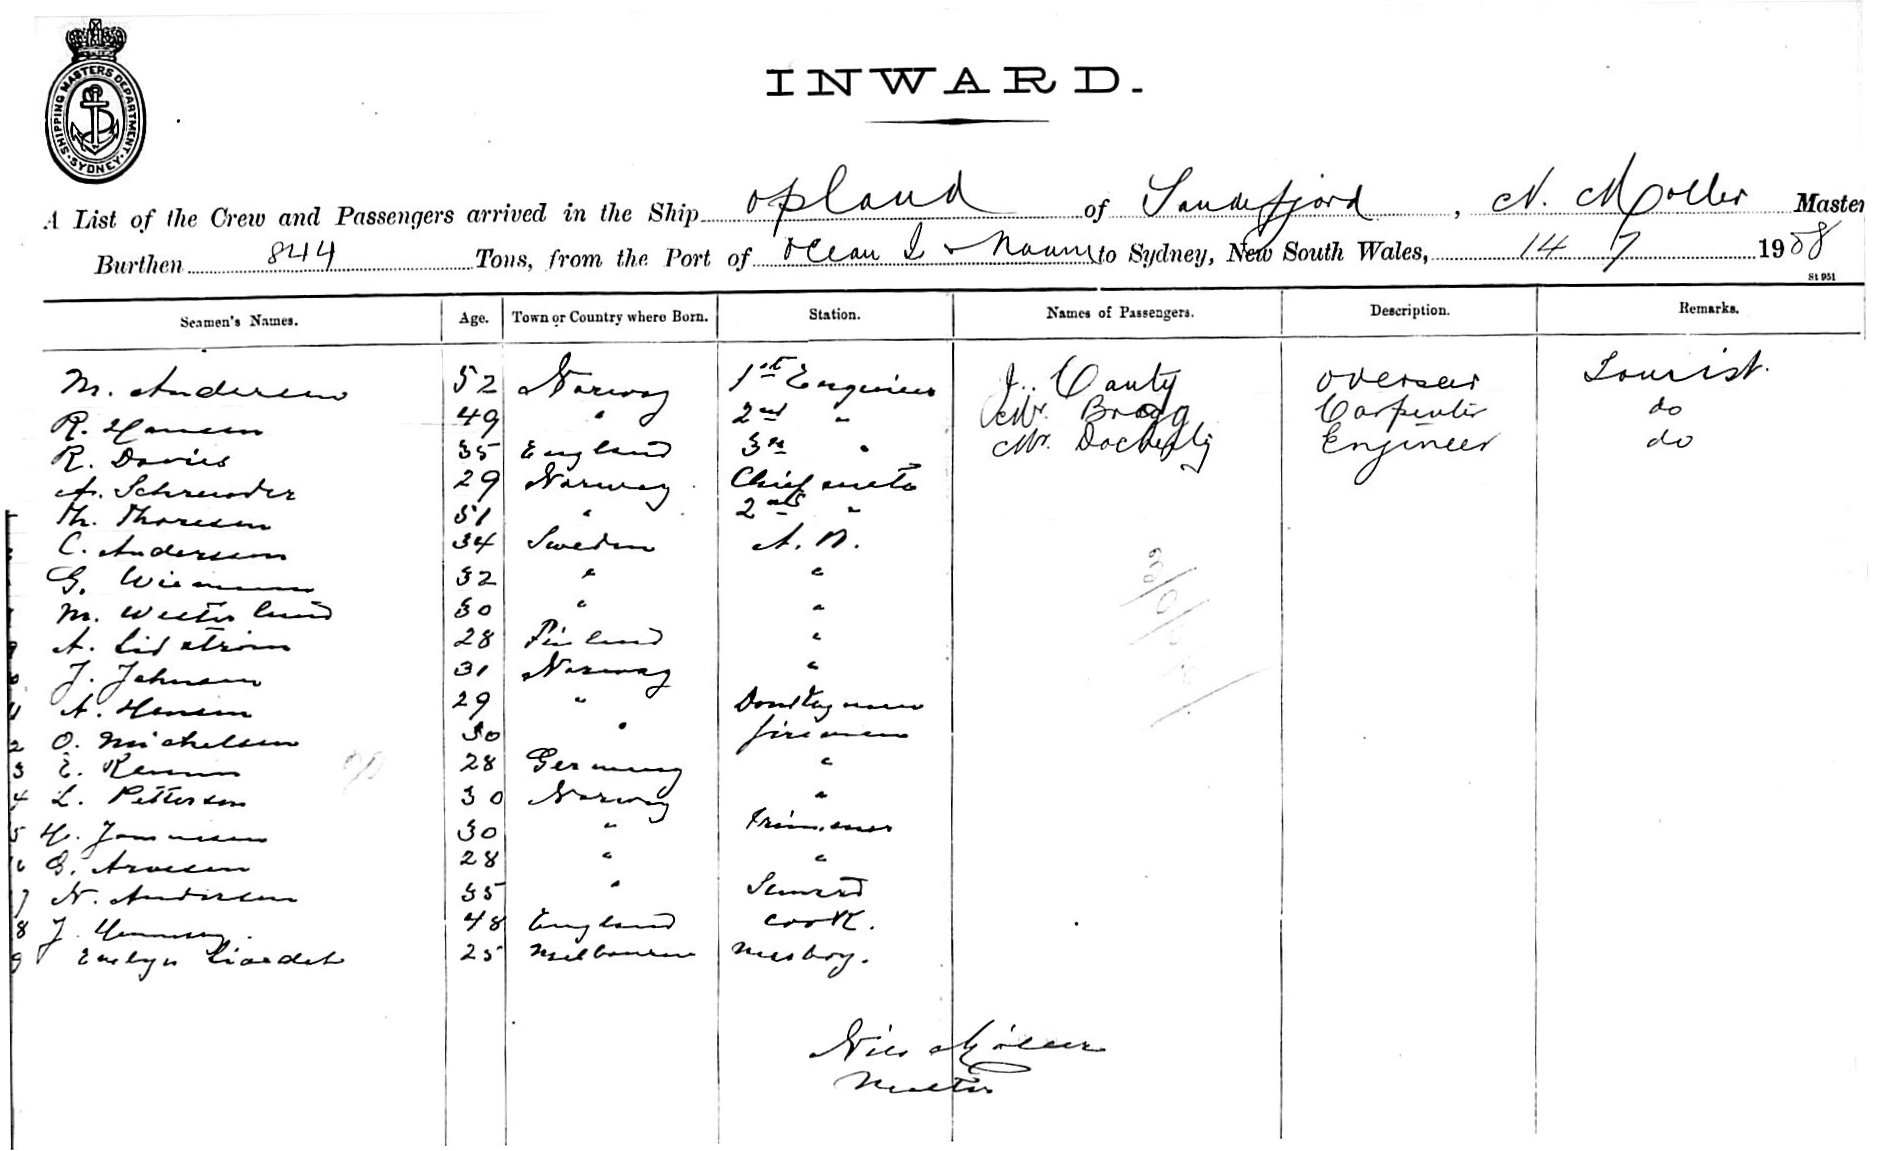 SHIPPING MASTERS DEPARTMENT · SYDNEY ·
INWARD.
A List of the Crew and Passengers arrived in the Ship opland of Sandefjord, N. Moller Master
Burthen 844 Tons, from the Port of Ocean I & Nauru to Sydney, New South Wales, 14 7 1908
St 951
Seamen's Names. Age. Town or Country where Born. Station. Names of Passengers. Description. Remarks.
M. Andersen 52 Norway 1st Engineer J. Canty overseer Tourist.
R. Hansen 49 " 2nd " Mr. Bragg Carpenter do
R. Davies 35 England 3rd " Mr. Docherty Engineer do
A. Schreuder 29 Norway Chief mate
Th. Thoresen 51 " 2nd "
C. Andersen 34 Sweden A. B.
G. 32 " "
M. Westerlund 30 " "
A. Lidstrom 28 Finland "
J. Johnsen 31 Norway "
11 A. Hansen 29 " Donkeyman
2 O. Michelsen 30 " firemen
3 E. 28 Germany "
4 L. Petterson 30 Norway "
5 H. 30 " Trimmer
6 G. Arvesen 28 " "
7 N. Andersen 35 " Steward
8 J. Hennessy. 48 England cook.
9 Evelyn Liardet 25 Melbourne messboy.
Nils Möller
Master